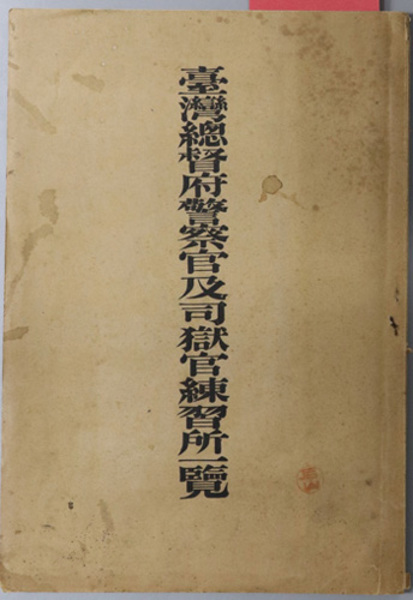 臺灣總督府警察官及司獄官練習所一覽